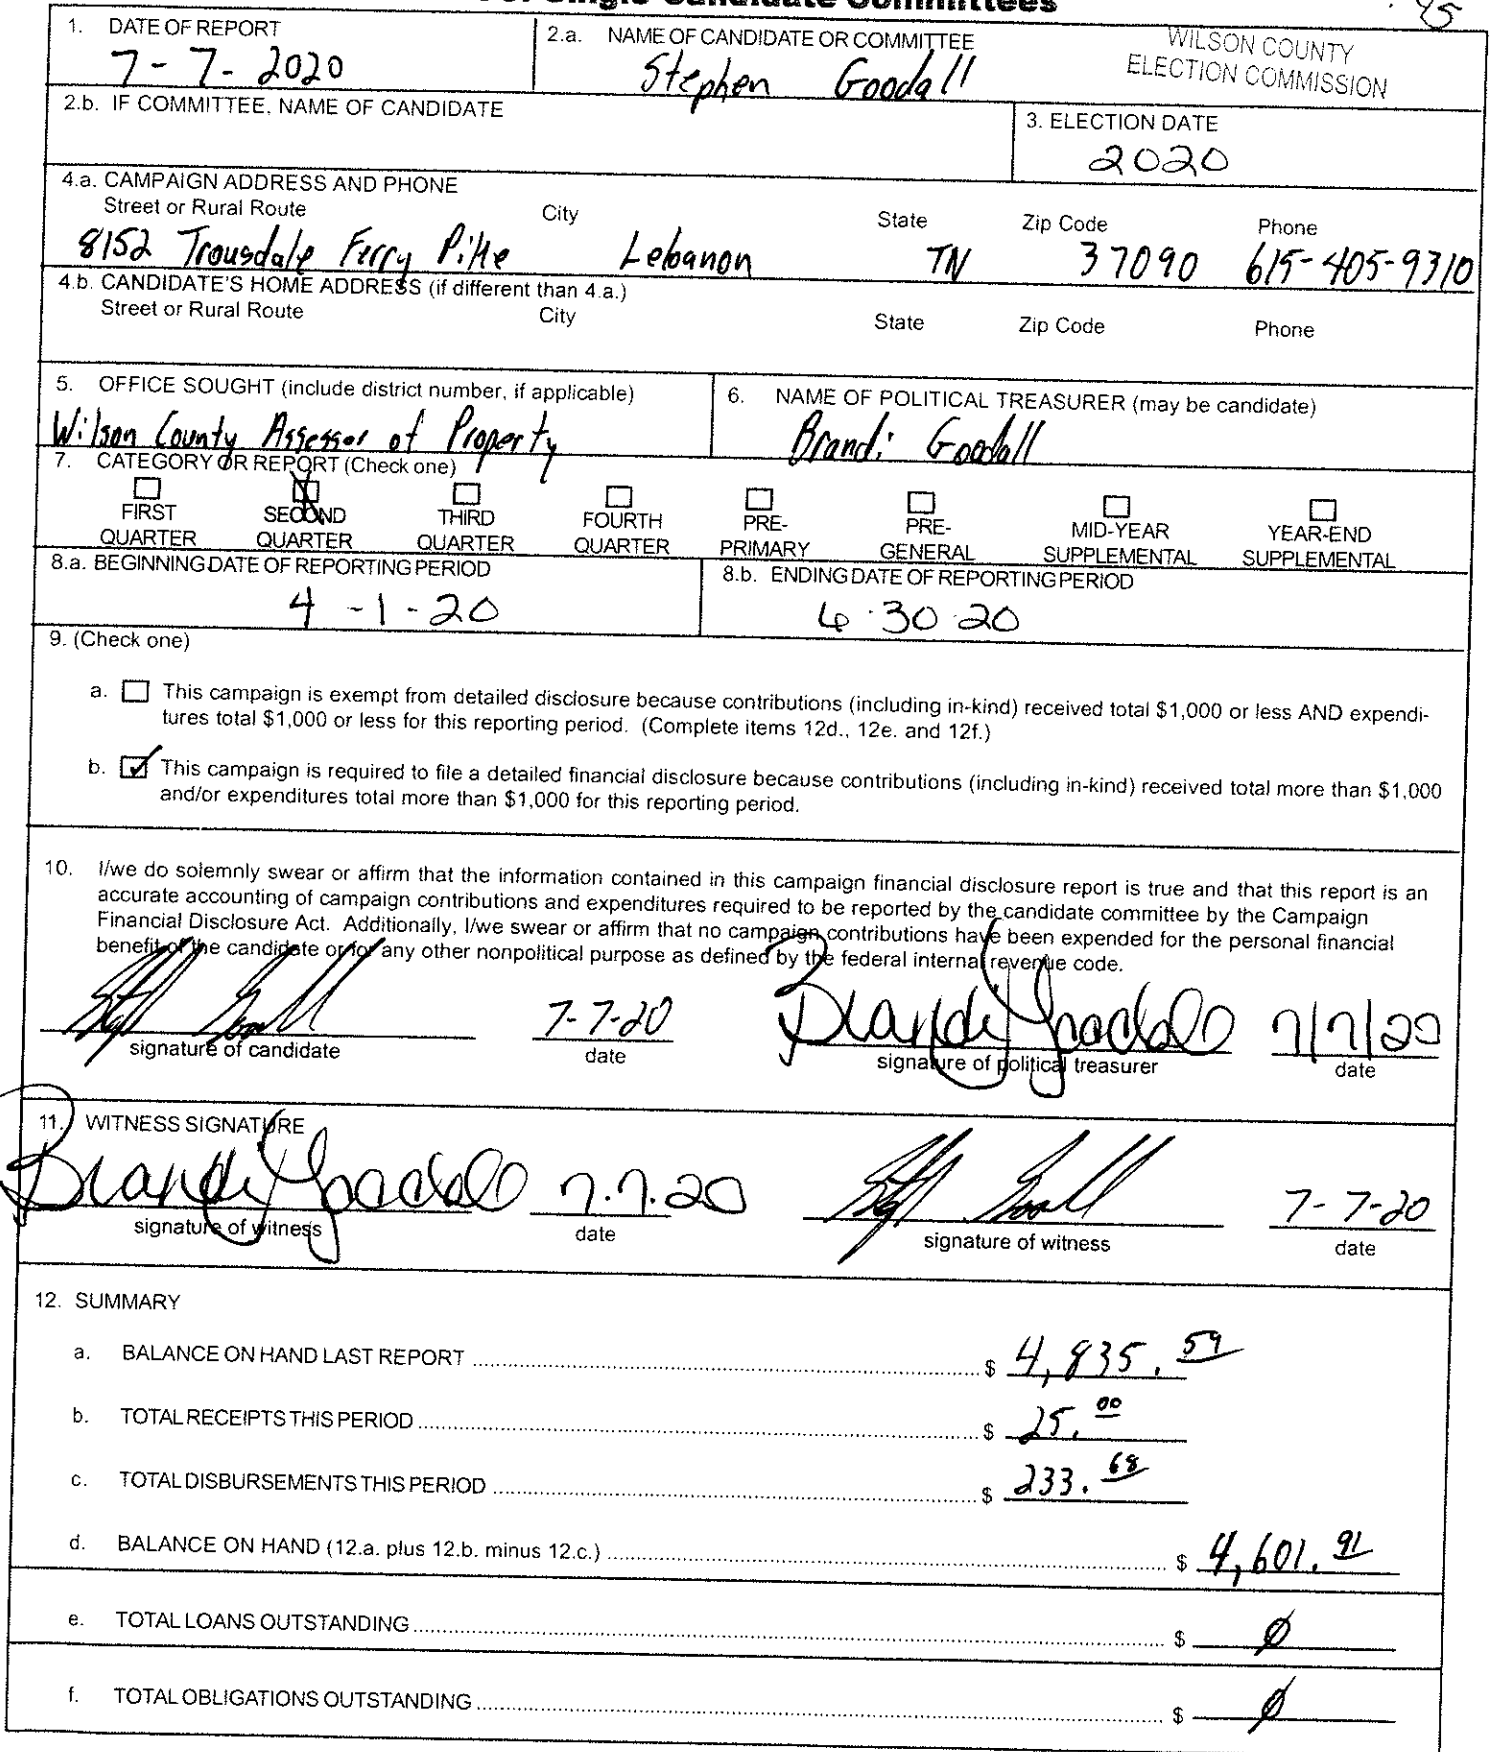 Single Candidate Committees
WILSON COUNTY
ELECTION COMMISSION
1. DATE OF REPORT
7-7-2020
2.a. NAME OF CANDIDATE OR COMMITTEE
Stephen Goodall
2.b. IF COMMITTEE, NAME OF CANDIDATE
3. ELECTION DATE
2020
4.a. CAMPAIGN ADDRESS AND PHONE
Street or Rural Route City State Zip Code Phone
8152 Trousdale Ferry Pike Lebanon TN 37090 615-405-9310
4.b. CANDIDATE'S HOME ADDRESS (if different than 4.a.)
Street or Rural Route City State Zip Code Phone
5. OFFICE SOUGHT (include district number, if applicable)
Wilson County Assessor of Property
6. NAME OF POLITICAL TREASURER (may be candidate)
Brandi Goodall
7. CATEGORY OR REPORT (Check one)
FIRST QUARTER
SECOND QUARTER
THIRD QUARTER
FOURTH QUARTER
PRE-PRIMARY
PRE-GENERAL
MID-YEAR SUPPLEMENTAL
YEAR-END SUPPLEMENTAL
8.a. BEGINNING DATE OF REPORTING PERIOD
4-1-20
8.b. ENDING DATE OF REPORTING PERIOD
6.30.20
9. (Check one)
a. This campaign is exempt from detailed disclosure because contributions (including in-kind) received total $1,000 or less AND expendi-
tures total $1,000 or less for this reporting period. (Complete items 12d., 12e. and 12f.)
b. This campaign is required to file a detailed financial disclosure because contributions (including in-kind) received total more than $1,000
and/or expenditures total more than $1,000 for this reporting period.
10. I/we do solemnly swear or affirm that the information contained in this campaign financial disclosure report is true and that this report is an
accurate accounting of campaign contributions and expenditures required to be reported by the candidate committee by the Campaign
Financial Disclosure Act. Additionally, I/we swear or affirm that no campaign contributions have been expended for the personal financial
benefit of the candidate or for any other nonpolitical purpose as defined by the federal internal revenue code.
7-7-20 Brandi Goodall 7/7/20
signature of candidate date signature of political treasurer date
11. WITNESS SIGNATURE
Brandi Goodall 7.7.20 7-7-20
signature of witness date signature of witness date
12. SUMMARY
a. BALANCE ON HAND LAST REPORT $ 4,835.59
b. TOTAL RECEIPTS THIS PERIOD $ 25.00
c. TOTAL DISBURSEMENTS THIS PERIOD $ 233.68
d. BALANCE ON HAND (12.a. plus 12.b. minus 12.c.) $ 4,601.91
e. TOTAL LOANS OUTSTANDING $ Ø
f. TOTAL OBLIGATIONS OUTSTANDING $ Ø